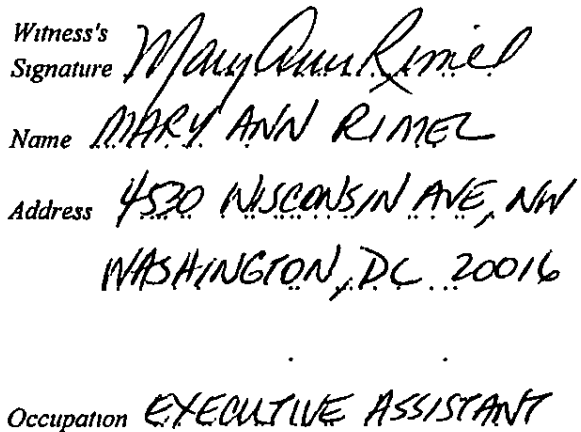 Witness's
Signature Mary Ann Rimel
Name MARY ANN RIMEL
Address 4530 WISCONSIN AVE, NW
WASHINGTON, DC 20016
Occupation EXECUTIVE ASSISTANT